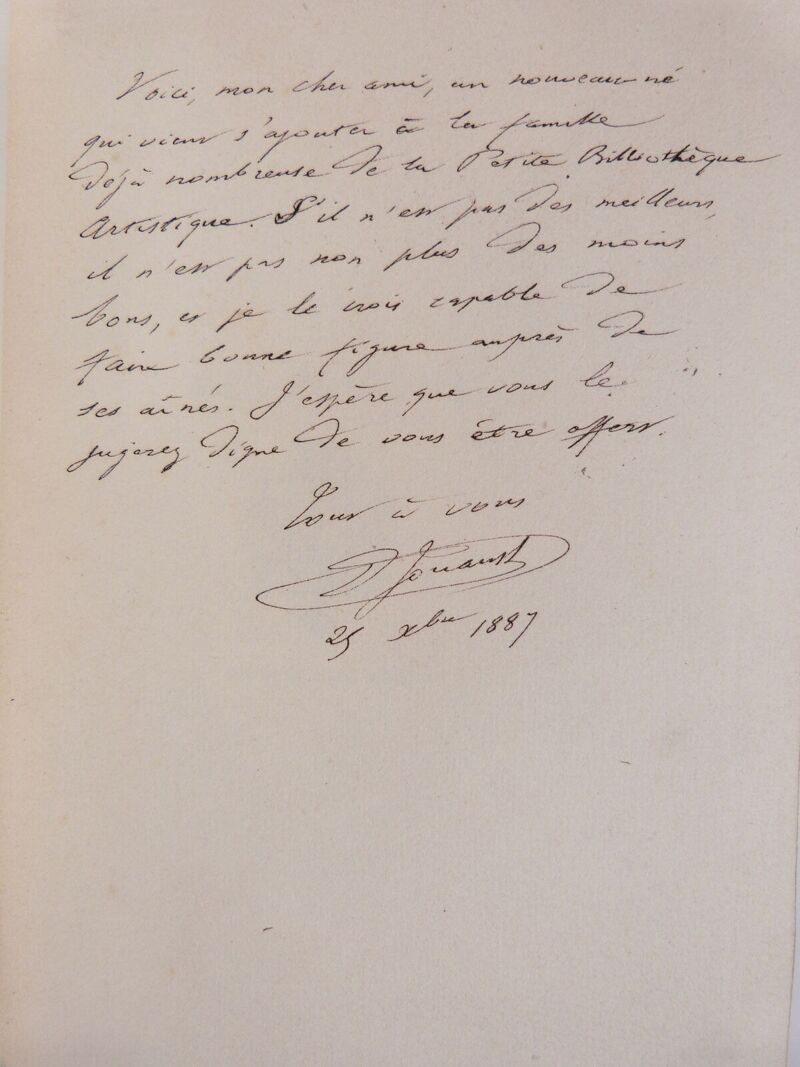 Voici, mon cher ami, un nouveau-né
qui vient s'ajouter à la famille
déjà nombreuse de la Petite Bibliothèque
Artistique. S'il n'est pas des meilleurs,
il n'est pas non plus des moins
bons, et je le crois capable de
faire bonne figure auprès de
ses aînés. J'espère que vous le
jugerez digne de vous être offert.
Tout à vous
D Jouaust
25 xbre 1887